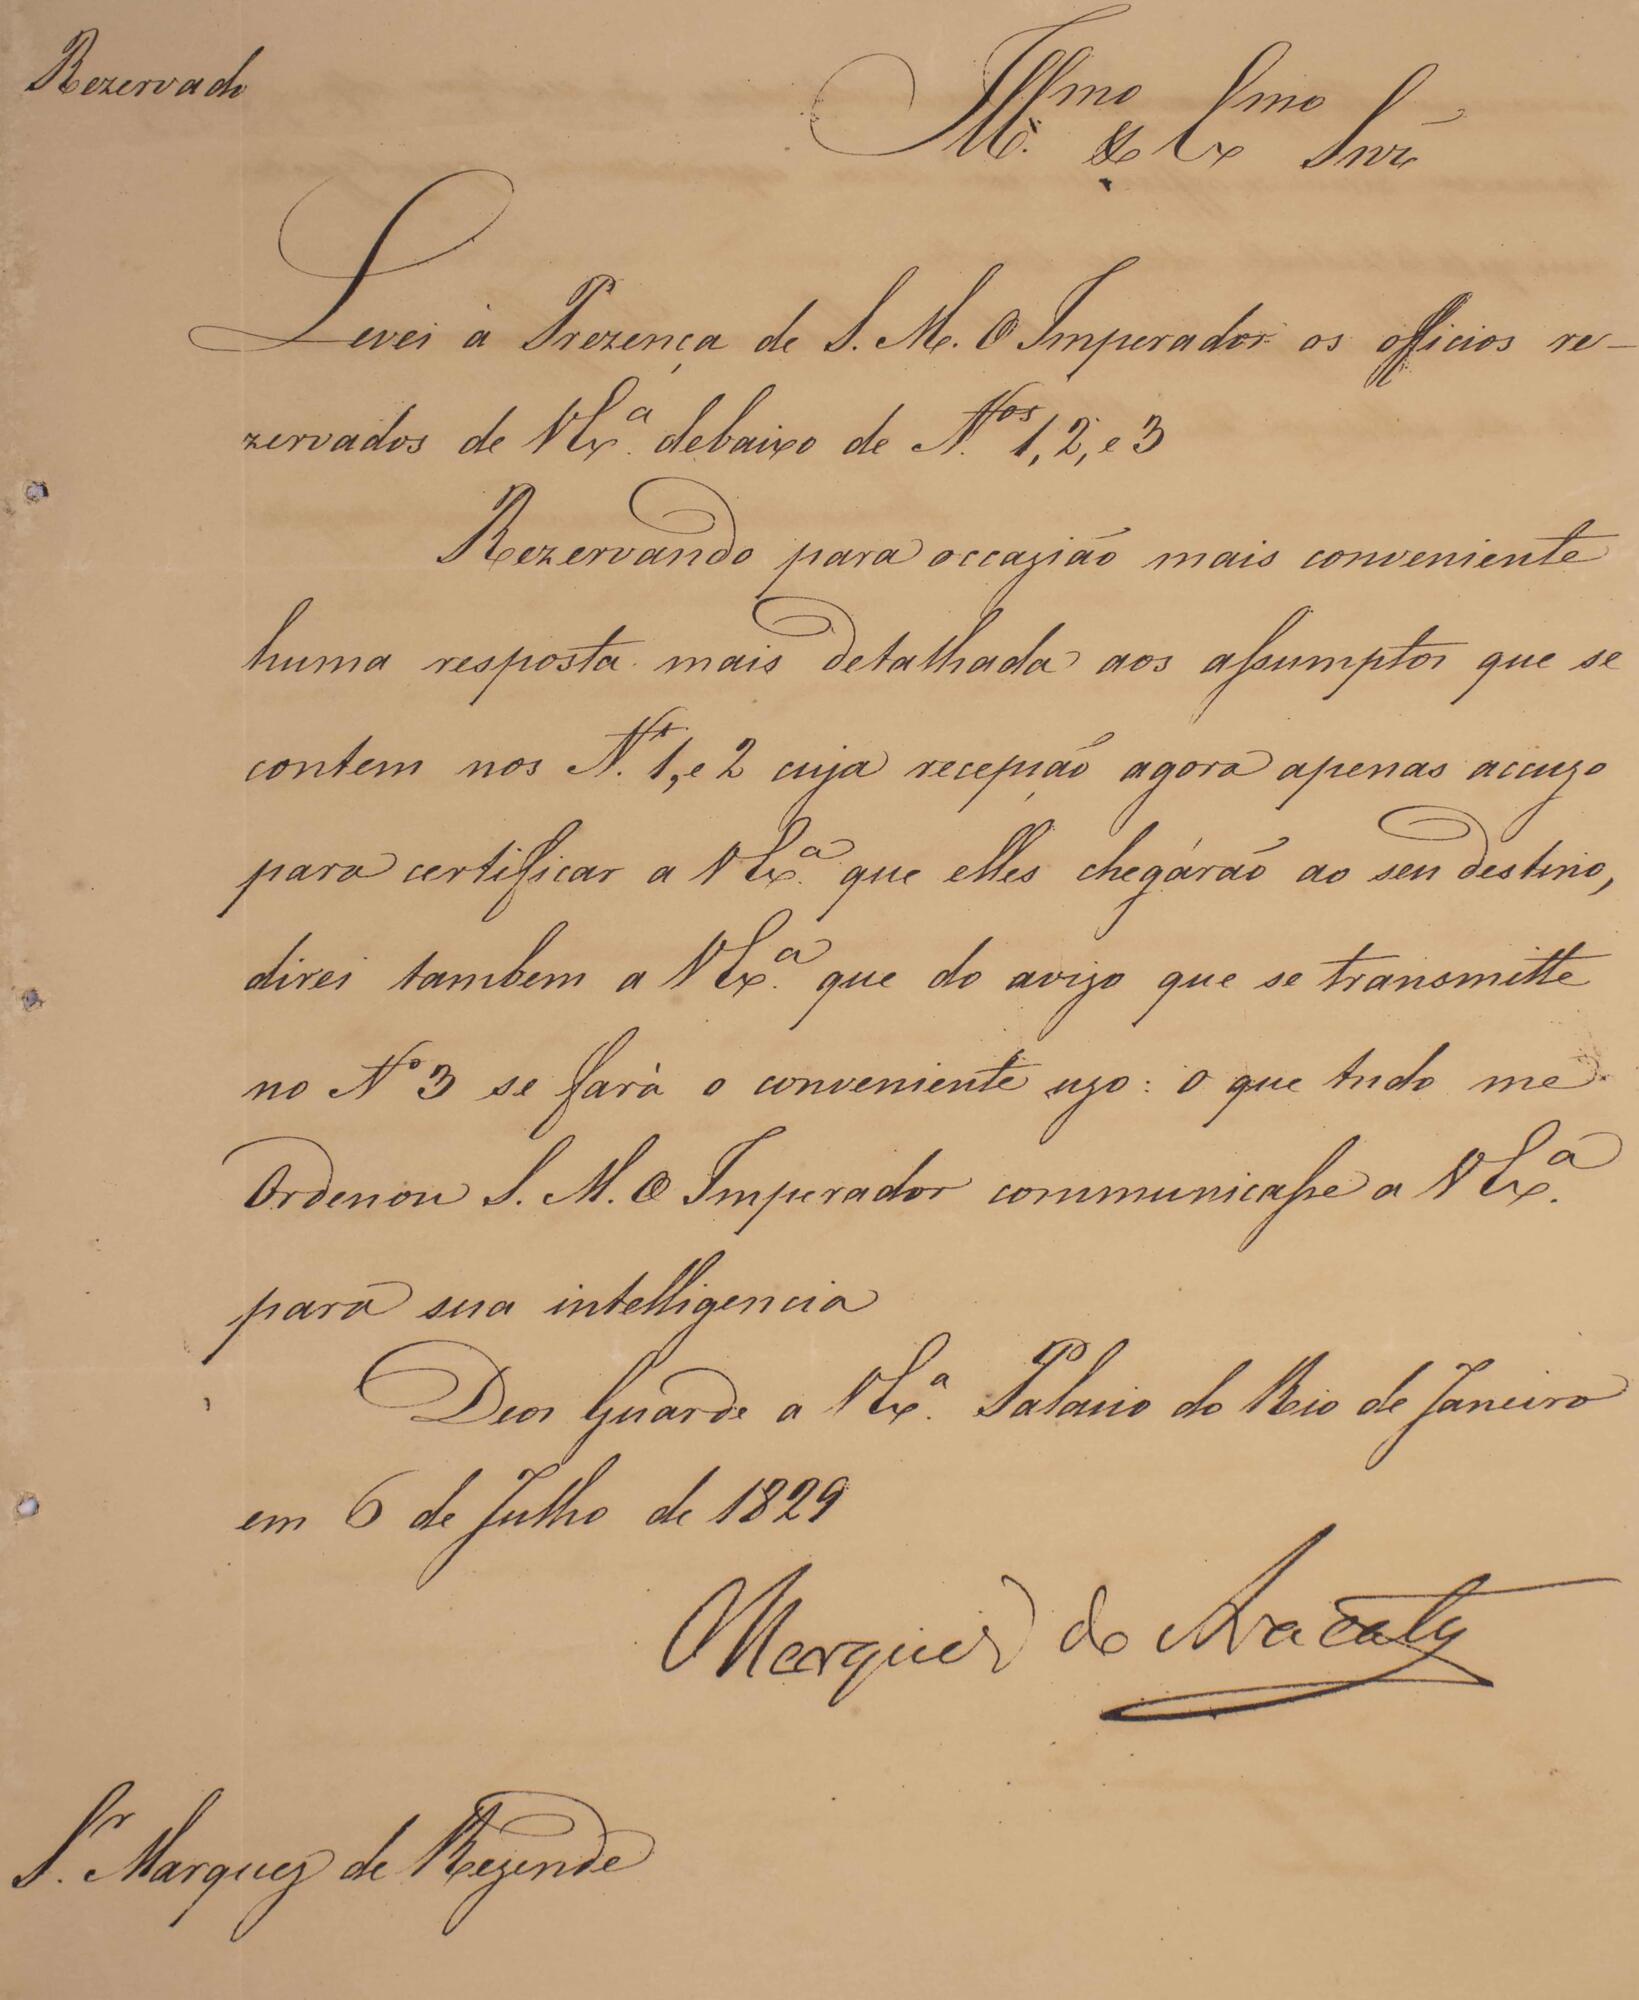 Rezervado
Illmo. e Exmo Snr.
Levei à Prezença de S. M. O Imperador os officios re-
zervados de V Exª. debaixo de N.os 1, 2, e 3
Rezervando para occazião mais conveniente
huma resposta mais detalhada aos assumptos que se
contem nos N.s 1, e 2 cuja recepção agora apenas accuzo
para certificar a V Exª. que elles chegárão ao seu destino,
direi tambem a V Exª. que do avizo que se transmitte
no Nº 3 se fará o conveniente uzo: o que tudo me
Ordenou S. M. O Imperador communicasse a V Exª.
para sua intelligencia
Deos Guarde a V Exª. Palacio do Rio de Janeiro
em 6 de Julho de 1829
Marquez de Aracaty
Sr. Marquez de Rezende